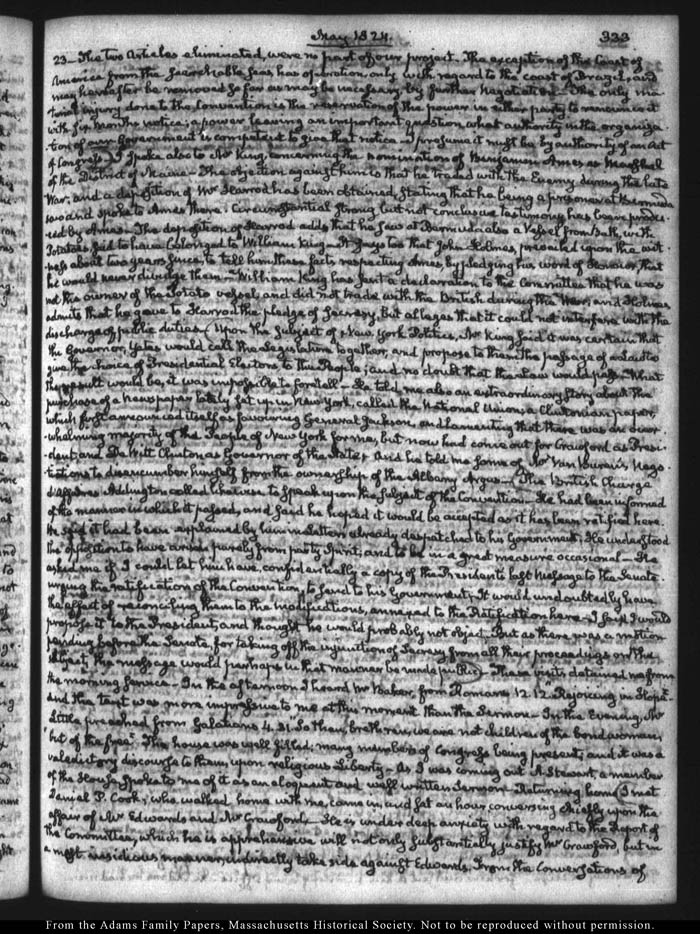 May 1824.
333
23— The two Articles eliminated, were no part of our project. The exception of the Coast of
America from the searchable seas has operation only with regard to the coast of Brazil, and
may hereafter be removed so far as may be necessary by further Negotiation— The only ma-
terial injury done to the Convention is the reservation of the power in either party to renounce it
with six Months notice; a power leaving an important question what authority in the organiza-
tion of our Government is competent to give that notice— I presume it must be by authority of an Act
of Congress.) I spoke also to Mr King, concerning the nomination of Benjamin Ames as Marshal
of the District of Maine— The objection against him is that he traded with the Enemy during the late
War; and a deposition of Mr Harrod has been obtained, stating that he being a prisoner at Bermuda
saw and spoke to Ames there. Circumstantial strong but not conclusive testimony has been produ-
ced by Ames— The deposition of Harrod adds that he saw at Bermuda also a Vessel from Bath, with
Potatoes, said to have belonged to William King— It says too that John Holmes, prevailed upon the wit-
ness about two years since, to tell him these facts respecting Ames, by pledging his word of Honour, that
he would never divulge them— William King has sent a declaration to the Committee that he was
not the owner of the Potato vessel, and did not trade with the British during the War; and Holmes
admits that he gave to Harrod the pledge of Secrecy, but alleges that it could not interfere with the
discharge of public duties— (Upon the subject of New York Politics, Mr King said it was certain that
the Governor, Yates would call the Legislature together, and propose to them the passage of a Law to
give the choice of Presidential Electors to the People; and no doubt that the Law would pass— What
the result would be, it was impossible to foretell— He told me also an extraordinary story about the
purchase of a newspaper lately set up in New York, called the National Union; a Clintonian paper,
which first announced itself as favouring General Jackson, and lamenting that there was an over-
whelming majority of the People of New York for me, but now had come out for Crawford as Presi-
dent; and De Witt Clinton as Governor of the State; And he told me some of Mr Van Buren's Nego-
tiations to disencumber himself from the ownership of the Albany Argus— (The British Chargé
d'Affaires Addington called likewise to speak upon the subject of the Convention— He had been informed
of the manner in which it passed, and said he hoped it would be accepted as it has been ratified here.
He said it had been explained by him in letters already despatched to his Government. He understood
the opposition to have arisen purely from party spirit, and to be in a great measure occasional— He
asked me if I could let him have, confidentially a copy of the President's last Message to the Senate.
urging the ratification of the Convention, to send to his Government. It would undoubtedly have
the effect of reconciling them to the modifications, annexed to the Ratification here— I said I would
propose it to the President, and thought he would probably not object. But as there was a motion
pending before the Senate, for taking off the injunction of Secrecy from all their proceedings on this
subject, the message would perhaps in that manner be made public)— These visits detained me from
the morning Service— In the afternoon I heard Mr Baker, from Romans 12. 12. Rejoicing in Hope.
And the text was more impressive to me at this moment than the Sermon— In the Evening, Mr
Little preached from Galatians 4. 31. So then, brethren, we are not children of the bond woman,
but of the free. The house was well filled; many members of Congress being present; and it was a
valedictory discourse to them, upon religious Liberty— As I was coming out A. Stewart, a member
of the House, spoke to me of it as an eloquent and well written Sermon— Returning home (I met
Daniel P. Cook, who walked home with me, came in, and sat an hour conversing chiefly upon the
affair of Mr Edwards and Mr Crawford— He is under deep anxiety with regard to the Report of
the Committee, which he is apprehensive will not only substantially justify Mr Crawford, but in
a most insidious manner, indirectly take side against Edwards. From the Conversations of
From the Adams Family Papers, Massachusetts Historical Society. Not to be reproduced without permission.